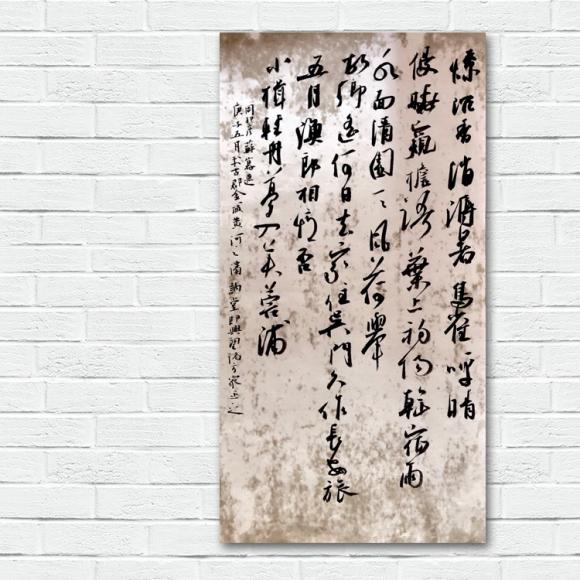 燎沉香消溽暑鳥雀呼晴
侵曉窺檐語葉上初陽乾宿雨
水面清圓一一風荷舉
故鄉遙何日去家住吳門久作長安旅
五月漁郎相憶否
小楫輕舟夢入芙蓉浦
周邦彥蘇幕遮
庚子五月於古郡金城黃河之濱